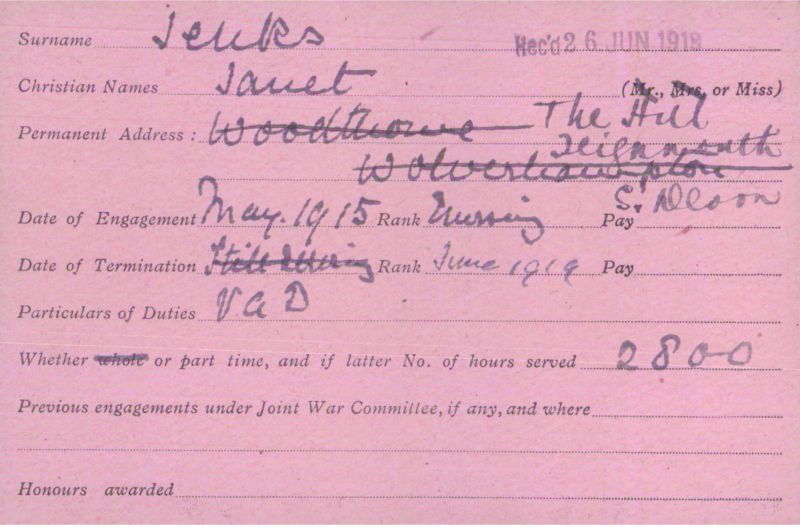 Surname Jenks Rec'd 26 JUN 1919
Christian Names Janet (Mr., Mrs. or Miss)
Permanent Address: Woodthorne The Hill
Teignmouth
Wolverhampton
S. Devon
Date of Engagement May. 1915 Rank Nursing Pay
Date of Termination Still Serving Rank June 1919 Pay
Particulars of Duties V A D
Whether whole or part time, and if latter No. of hours served 2800
Previous engagements under Joint War Committee, if any, and where
Honours awarded